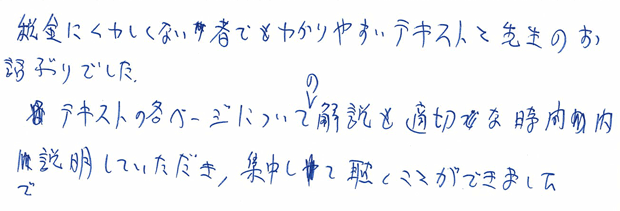 税金にくわしくない者でもわかりやすいテキストと先生のお
話ぶりでした。
テキストの各ページについての解説も適切な時間内
で説明していただき、集中して聴くことができました